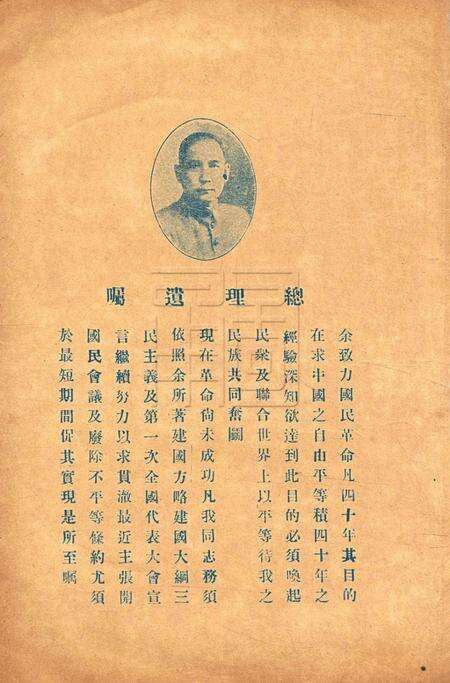 總理遺囑
余致力國民革命凡四十年其目的
在求中國之自由平等積四十年之
經驗深知欲達到此目的必須喚起
民衆及聯合世界上以平等待我之
民族共同奮鬭
現在革命尙未成功凡我同志務須
依照余所著建國方略建國大綱三
民主義及第一次全國代表大會宣
言繼續努力以求貫澈最近主張開
國民會議及廢除不平等條約尤須
於最短期間促其實現是所至囑